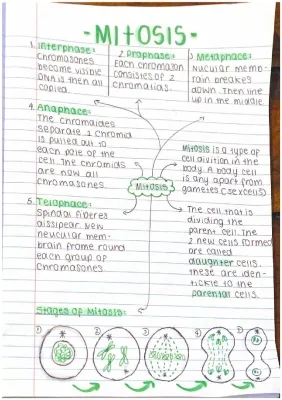 -MITOSIS-
1. Interphase:
Chromosones
become visible
DNA is then all
copied.
2 Prophase:
Each chromason
consistes of 2
chromatias.
3 Metaphace:
Nucular mem-
rain breakes
down. Then line
up in the middle.
4. Anaphace:
The chromaides
separate 1 chromid
is pulled out to
each pole of the
cell. The chromids
are now all
chromasones.
MITOSIS
Mitosis is a type of
cell divition in the
body. A body cell
is any apart from
gametes (sexcells)
5. Telaphace:
Spindal fiberes
dissipear New
neucular mem-
brain frome round
each group of
chromasones.
The cell that is
dividing the
parent cell. The
2 new cells formed
are called
daughter cells.
these are iden-
tickle to the
parental cells.
Stages of Mitosis:
① ② ③ ④ ⑤